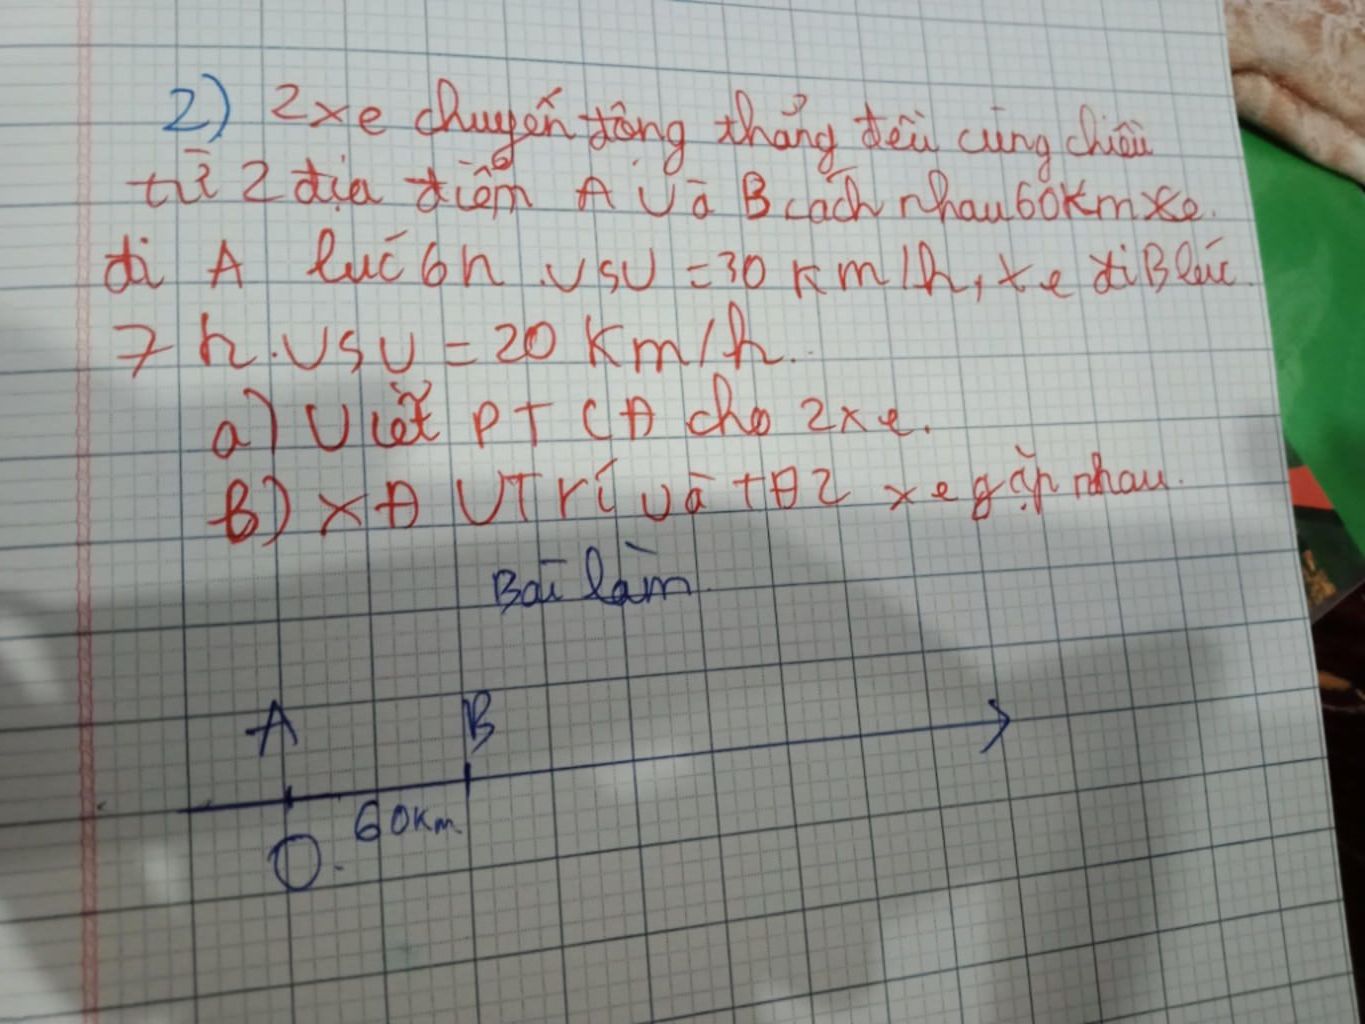 2) 2xe chuyển động thẳng đều cùng chiều
từ 2 địa điểm A và B cách nhau 60Km xe.
đi A lúc 6h .vs v = 30 Km/h, xe đi B lúc
7 h. vs v = 20 Km/h.
a) Viết PT CĐ cho 2xe.
B) XĐ VTrí và TĐ 2 xe gặp nhau.
Bài làm
A B
60Km
O.